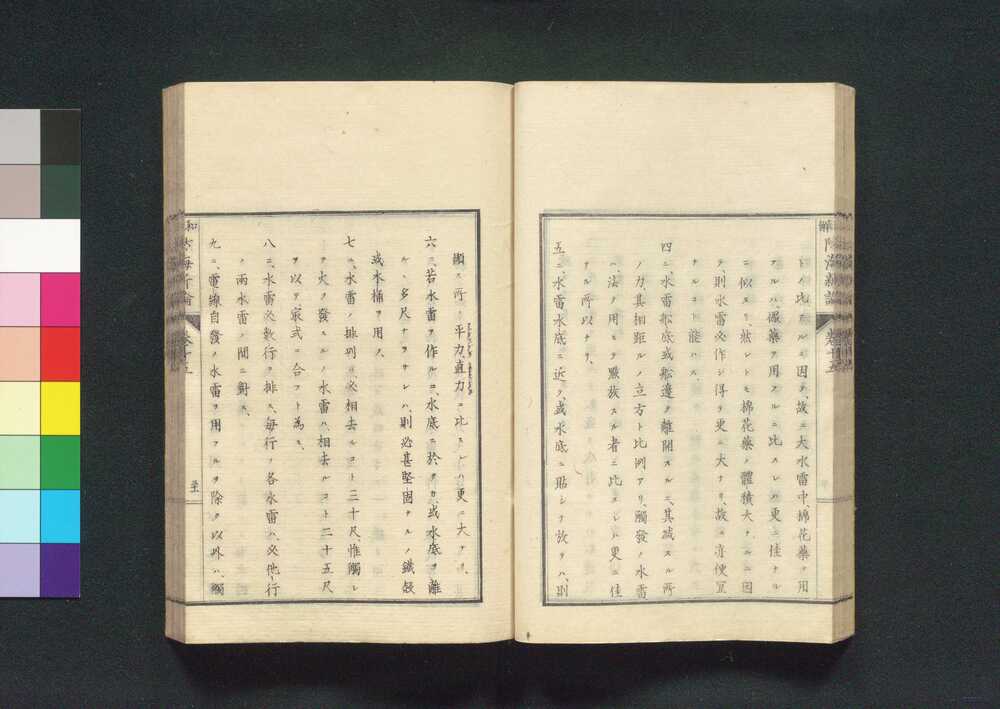 ト比スルニ因テ、故ニ大水雷中、棉花藥ヲ用
フルハ、爆藥ヲ用フルニ比スレハ更ニ佳ナル
ニ似タリ、然レトモ棉花藥ノ體積大ナルニ因
テ、則水雷必作シ得テ更ニ大ナリ、故ニ亦便宜
ナルコト能ハス
四ニ、水雷船底或船邊ヲ離開スルニ、其減スル所
ノ力、其相距ルノ立方ト比例アリ、觸發ノ水雷
ハ、法ヲ用ヒテ點放スル者ニ比スレハ更ニ佳
ナル所以ナリ、
五ニ、水雷水底ニ近ク、或水底ニ貼シテ放テハ、則
顯ス所ノ平力、直力ニ比スレハ更ニ大ナリ、
六ニ、若水雷ヲ作ルニ、水底ニ於テカ、或水底ヲ離
ルヽ多尺ナラサレハ、則必甚堅固ナルノ鐵殼
或木桶ヲ用ノ、
七ニ、水雷ノ排列ハ必相去ルコト三十尺、惟觸レ
テ火ヲ發スルノ水雷ハ、相去ルコト二十五尺
ヲ以テ、最式ニ合フト為ス、
八ニ、水雷必數行ヲ排ス、毎行ノ各水雷ハ、必他行
ノ兩水雷ノ間ニ對ス、
九ニ、電線自發ノ水雷ヲ用フルヲ除ク以外ハ、觸